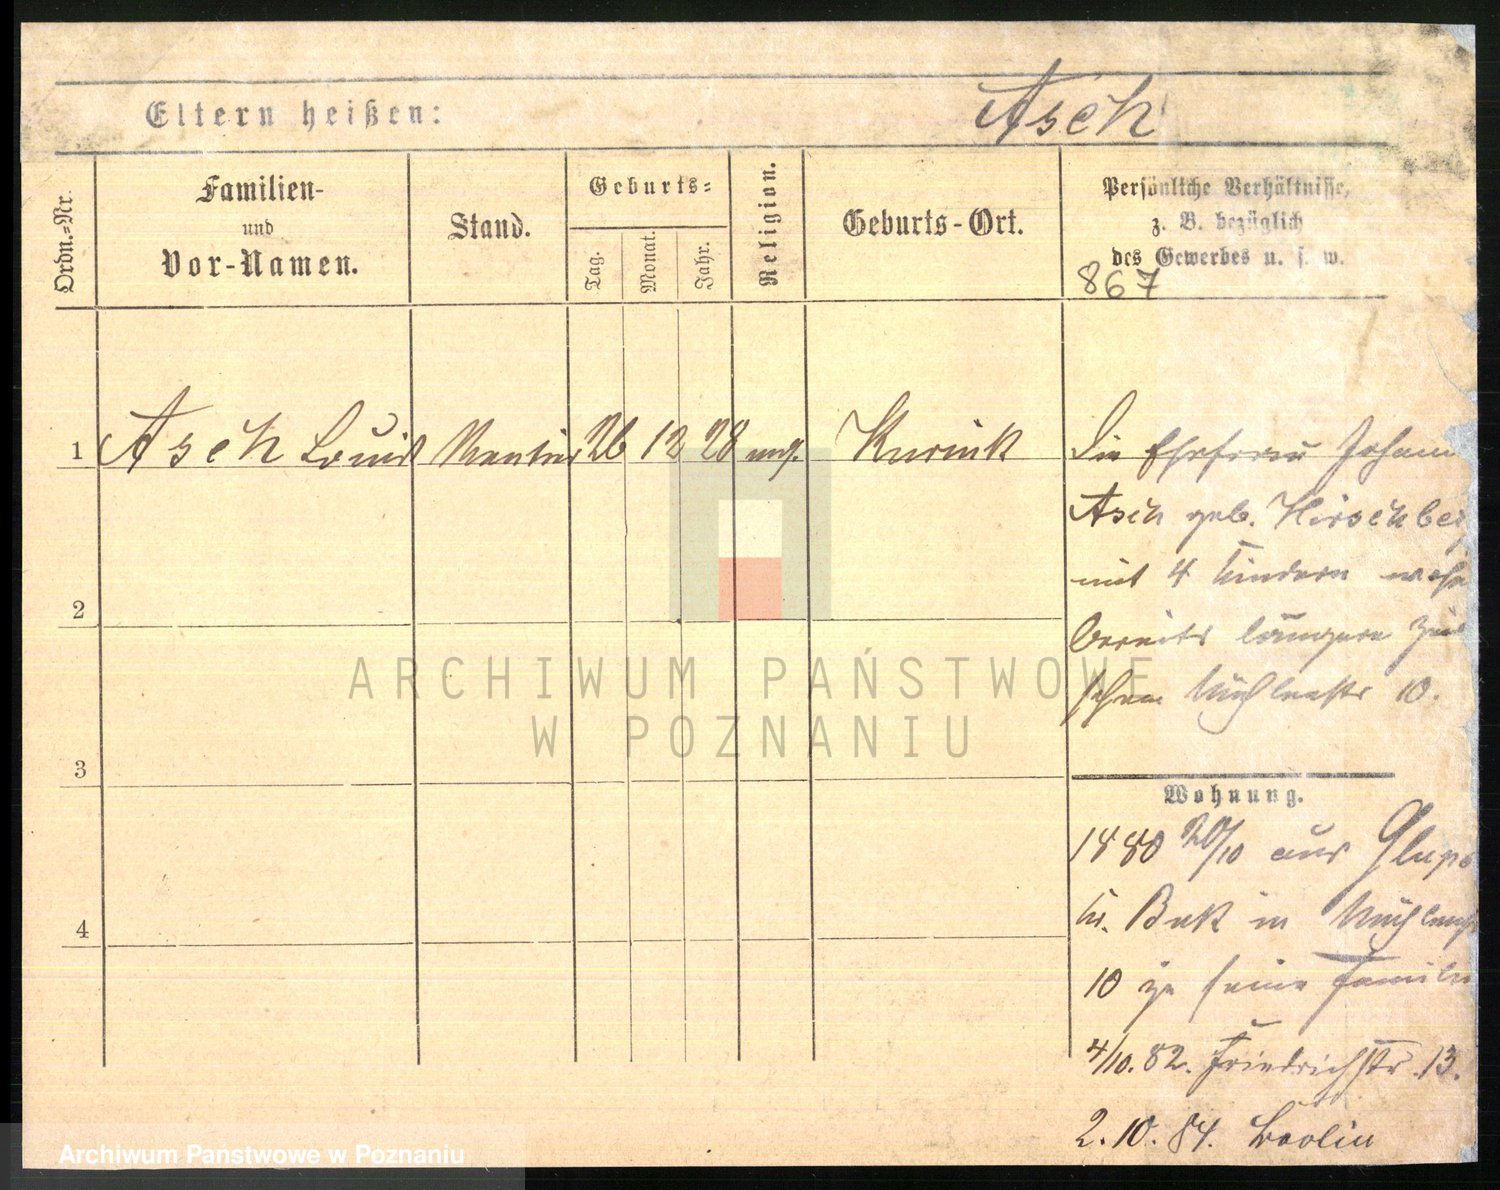 Eltern heißen: Asch
Ordn.-Nr.
Familien-
und
Vor-Namen.
Stand.
Geburts-
Tag.
Monat.
Jahr.
Religion.
Geburts-Ort.
Persönliche Verhältnisse,
z. B. bezüglich
des Gewerbes u. s. w.
867
1 Asch Louis Rentier 26 12 28 mos. Kurnik
Die Ehefrau Johann
Asch geb. Hirschber
mit 4 Kindern wohn
bereits längere Zeit
schon Mühlenstr 10.
2
3
4
Wohnung.
1880 20/10 aus Glupo
Kr. Buk in Mühlenstr
10 zu seine Familie
4/10. 82. Friedrichstr. 13.
2. 10. 84. Berlin
ARCHIWUM PAŃSTWOWE
W POZNANIU
Archiwum Państwowe w Poznaniu